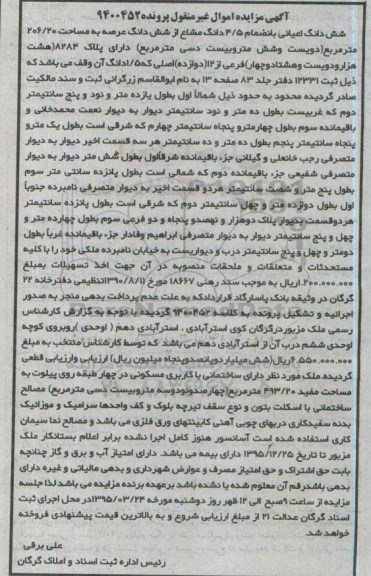 آگهی مزایده اموال غیرمنقول پرونده ۹۴۰۰۴۵۲
شش دانگ اعیانی بانضمام ۴/۵ دانگ مشاع از شش دانگ عرصه به مساحت ۲۰۶/۲۰
مترمربع(دویست وشش متروبیست دسی مترمربع) دارای پلاک ۸۲۸۴(هشت
هزارودویست وهشتادوچهار)فرعی از۱۲(دوازده)اصلی که۱/۵دانگ آن وقف می باشد که
ذیل ثبت ۱۲۳۳۱ دفتر جلد ۸۳ صفحه ۱۳ به نام ابوالقاسم زرگرانی ثبت و سند مالکیت
صادر گردیده محدود به حدود ذیل شمالا اول بطول یازده متر و نود و پنج سانتیمتر
دوم که غربیست بطول ده متر و نود سانتیمتر دیوار به دیوار نعمت محمدخانی و
باقیمانده سوم بطول چهارمترو پنجاه سانتیمتر چهارم که شرقی است بطول یک مترو
پنجاه سانتیمتر پنجم بطول ده متر و ده سانتیمتر هر سه قسمت اخیر دیوار به دیوار
متصرفی رجب خانعلی و گیلانی جزء باقیمانده شرقاًاول بطول شش متر دیوار به دیوار
متصرفی شفیعی جزء باقیمانده دوم که شمالی است بطول پانزده سانتی متر سوم
بطول پنج متر و شصت سانتیمتر هردو قسمت اخیر به دیوار متصرفی نامبرده جنوباً
اول بطول دوازده متر و چهل سانتیمتر دوم که شرقی است بطول پانزده سانتیمتر
هردوقسمت بدیوار پلاک دوهزار و نهصدو پنجاه و دو فرعی سوم بطول چهارده متر و
چهل و پنج سانتیمتر دیوار به دیوار متصرفی ابراهیم وفادار جزء باقیمانده غرباً بطول
دومتر و چهل و پنج سانتیمتر درب و دیواریست به خیابان نامبرده ملکی خود را با کلیه
مستحدثات و متعلقات و ملحقات منصوبه در آن جهت اخذ تسهیلات بمبلغ
۲۰۰.۰۰۰.۰۰۰.۱ریال به موجب سند رهنی ۱۸۶۶۷ مورخ ۱۳۹۰/۸/۱۱تنظیمی دفترخانه ۲۲
گرگان در وثیقه بانک پاسارگاد قراردادکه به علت عدم پرداخت بدهی منجر به صدور
اجرائیه و تشکیل پرونده به کلاسه ۹۴۰۰۴۵۲ گردیده با توجه به گزارش کارشناس
رسمی ملک مزبوردرگرگان کوی استرآبادی ، استرآبادی دهم ( اوحدی )روبروی کوچه
اوحدی ششم درب آن از استرآبادی دهم می باشد که توسط کارشناس منتخب به مبلغ
۶.۵۵۰.۰۰۰.۰۰۰ریال(شش میلیاردوپانصدوپنجاه میلیون ریال) ارزیابی وارزیابی قطعی
گردیده.ملک مورد نظر دارای ساختمانی با کاربری مسکونی در چهار طبقه روی پیلوت به
مساحت مفید ۴۹۳/۲۰ مترمربع(چهارصدونودوسه متروبیست دسی مترمربع) مصالح
ساختمانی با اسکلت بتون و نوع سقف تیرچه بلوک و کف واحدها سرامیک و موزائیک
بدنه سفیدکاری دربهای چوبی آهنی کابینتهای ورق فلزی می باشد و مصالح نما سیمان
کاری استفاده شده است آسانسور هنوز کامل اجرا نشده برابر اعلام بستانکار ملک
مزبور تا تاریخ ۱۳۹۵/۱۲/۲۵ دارای بیمه می باشد. دارای امتیاز آب و برق و گاز چنانچه
بابت حق اشتراک و حق امتیاز مصرف و عوارض شهرداری و بدهی مالیاتی و غیره دارای
بدهی باشدرقم آن معلوم شده یا نشده باشد برعهده برنده مزایده می باشد لذا جلسه
مزایده از ساعت ۹صبح الی ۱۲ ظهر روز دوشنبه مورخه ۱۳۹۵/۰۳/۲۴در محل اجرای ثبت
اسناد گرگان عدالت ۲۱ از مبلغ ارزیابی شروع و به بالاترین قیمت پیشنهادی فروخته
خواهد شد.
علی برقی
رئیس اداره ثبت اسناد و املاک گرگان